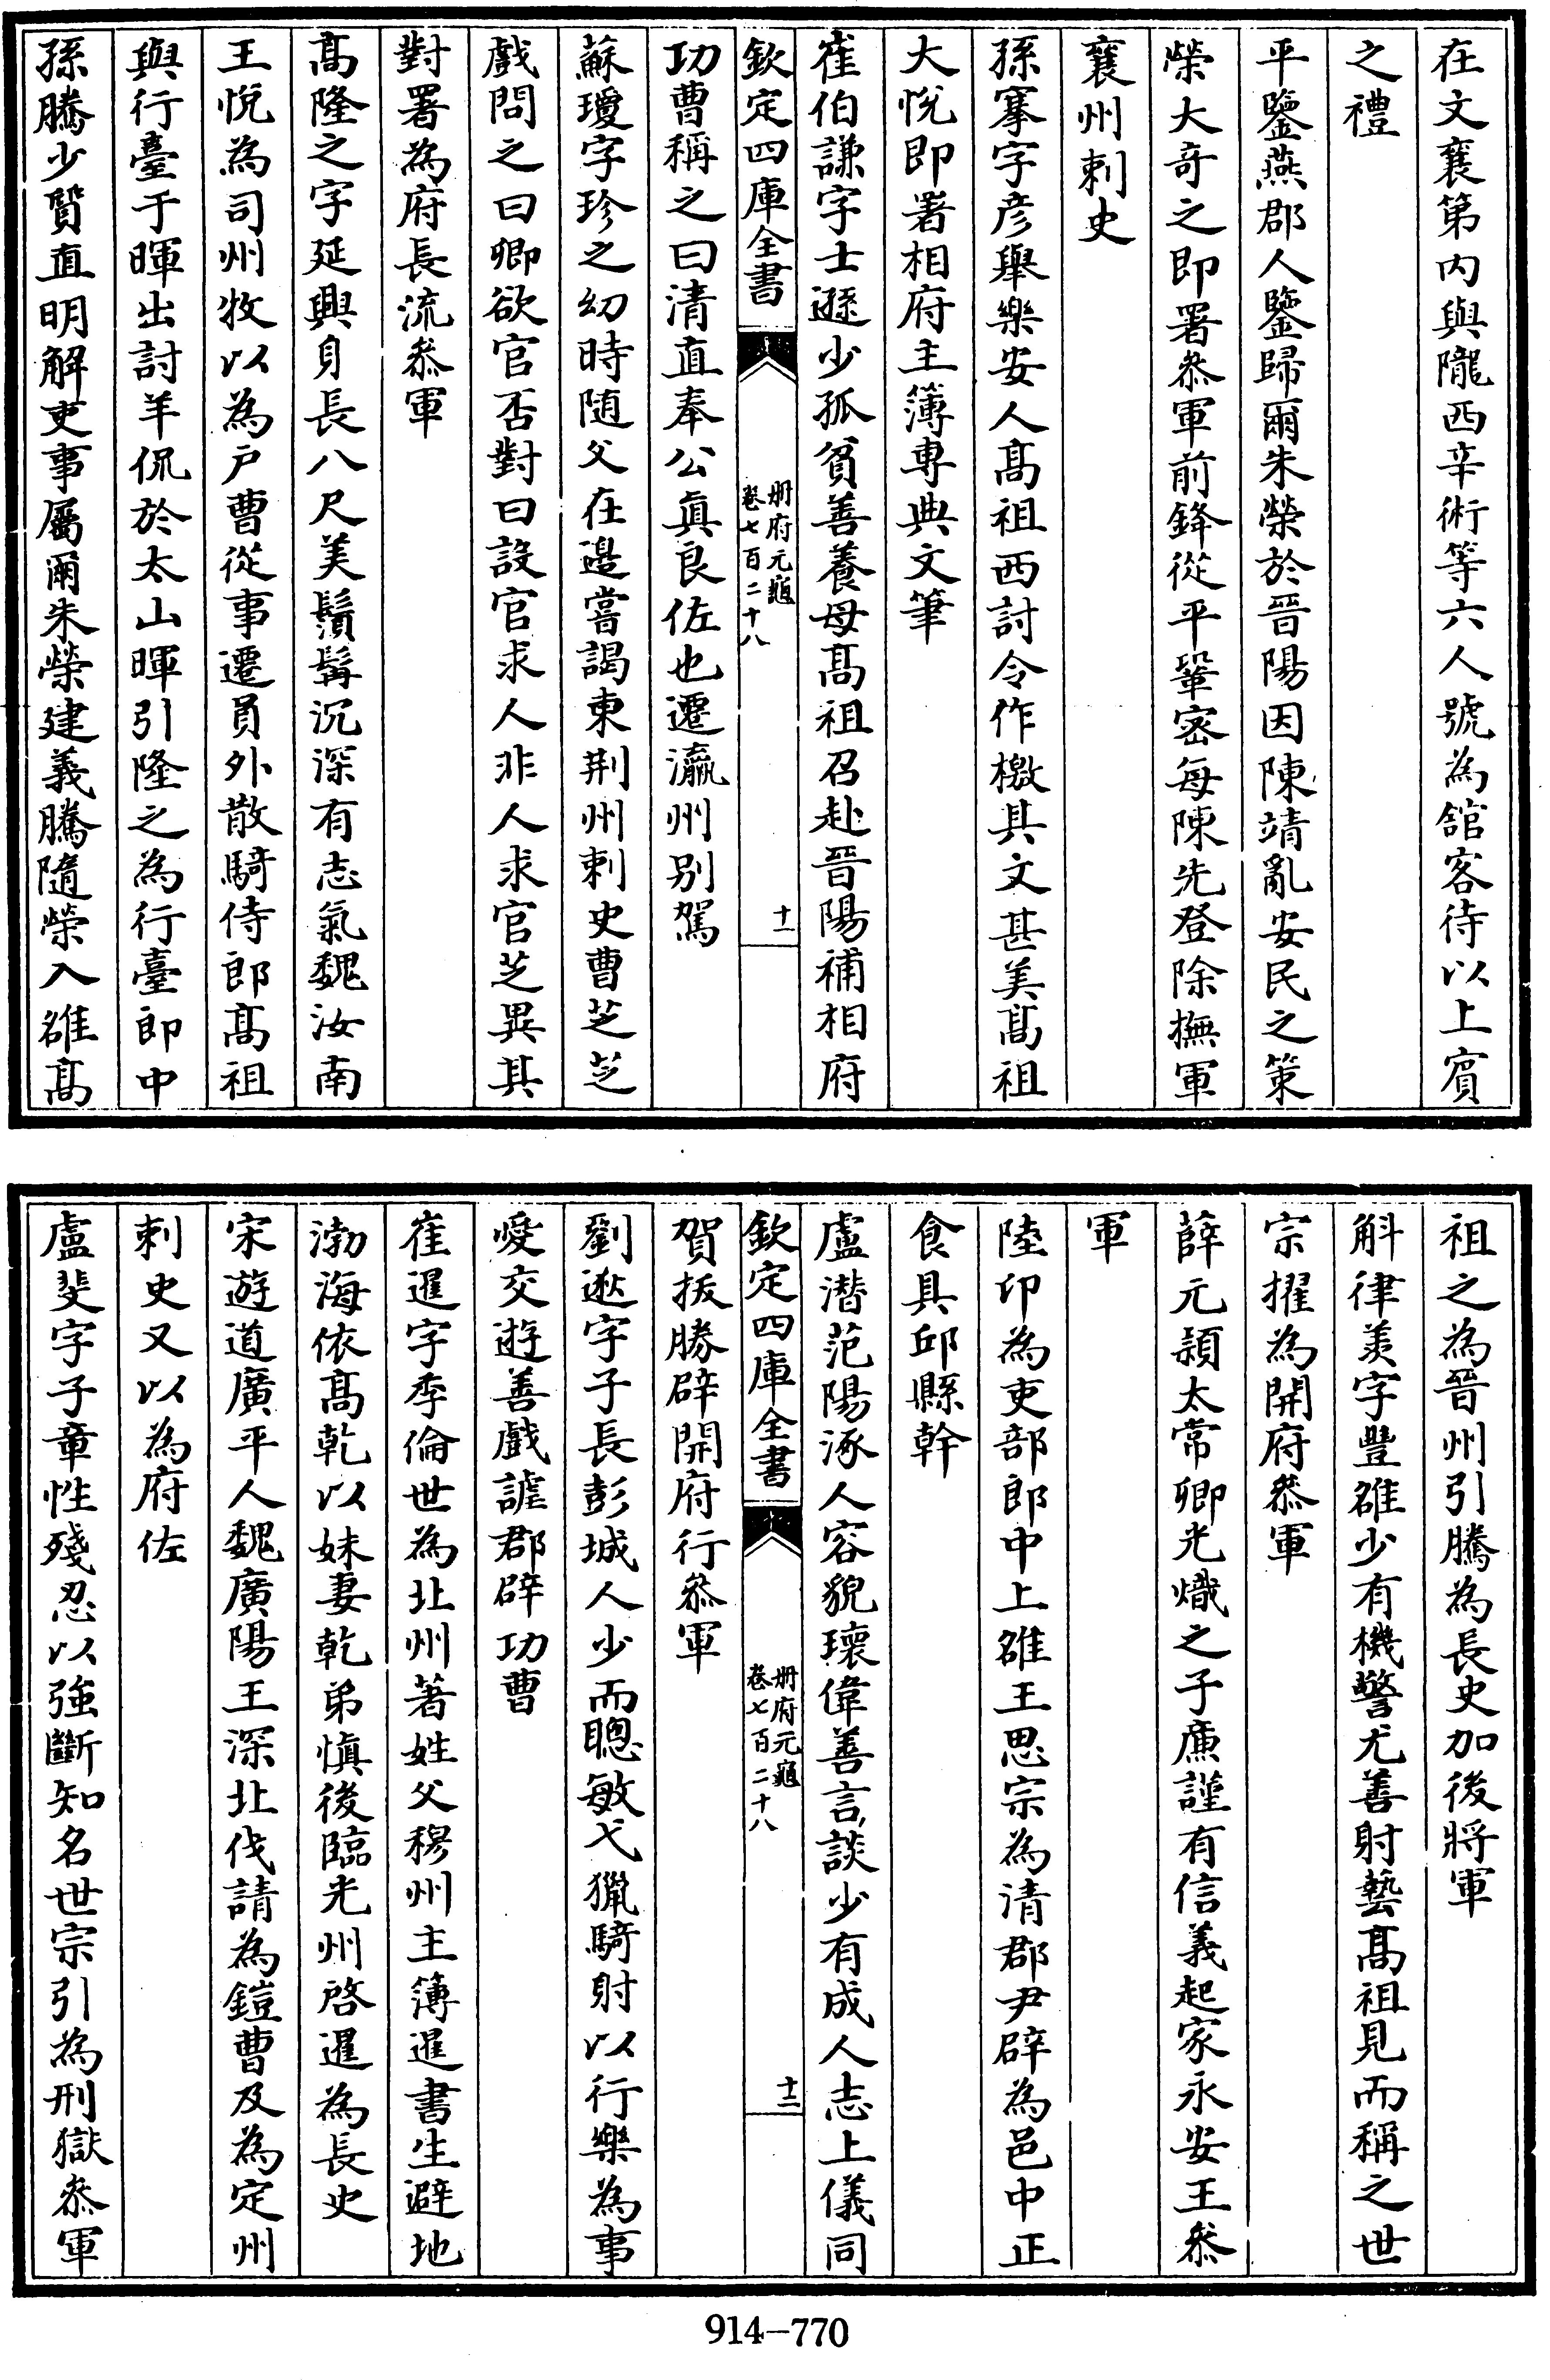 在文襄第内與隴西辛術等六人號為舘客待以上賓
之禮
平鑒燕郡人鑒歸爾朱榮於晉陽因陳靖亂安民之策
榮大奇之即署叅軍前鋒從平鞏宻每陳先登除撫軍
襄州刺史
孫搴字彦舉樂安人髙祖西討令作檄其文甚美髙祖
大悅即署相府主簿專典文筆
崔伯謙字士遜少孤貧善養母髙祖召赴晉陽補相府
欽定四庫全書
册府元龜
卷七百二十八
十一
功曹稱之曰清直奉公真良佐也遷瀛州别駕
蘇瓊字珍之幼時随父在邊嘗謁東荆州刺史曹芝芝
戲問之曰卿欲官否對曰設官求人非人求官芝異其
對署為府長流叅軍
髙隆之字延興身長八尺美鬚髯沉深有志氣魏汝南
王悅為司州牧以為戸曹從事遷員外散騎侍郎髙祖
與行臺于暉出討羊侃於太山暉引隆之為行臺郎中
孫騰少質直明解吏事屬爾朱榮建義騰隨榮入雒髙
祖之為晉州引騰為長史加後將軍
斛律羡字豐雒少有機警尤善射藝髙祖見而稱之世
宗擢為開府叅軍
薛元頴太常卿光熾之子亷謹有信義起家永安王叅
軍
陸卬為吏部郎中上雒王思宗為清郡尹辟為邑中正
食具邱縣幹
盧潜范陽涿人容貌瓌偉善言談少有成人志上儀同
欽定四庫全書
册府元龜
卷七百二十八
十二
賀㧞勝辟開府行叅軍
劉逖字子長彭城人少而聰敏弋獵騎射以行樂為事
愛交遊善戲謔郡辟功曹
崔暹字季倫世為北州著姓父穆州主簿暹書生避地
渤海依髙乾以妹妻乾弟慎後臨光州啓暹為長史
宋遊道廣平人魏廣陽王深北伐請為鎧曹及為定州
刺史又以為府佐
盧斐字子章性殘忍以強斷知名世宗引為刑獄叅軍
914-770